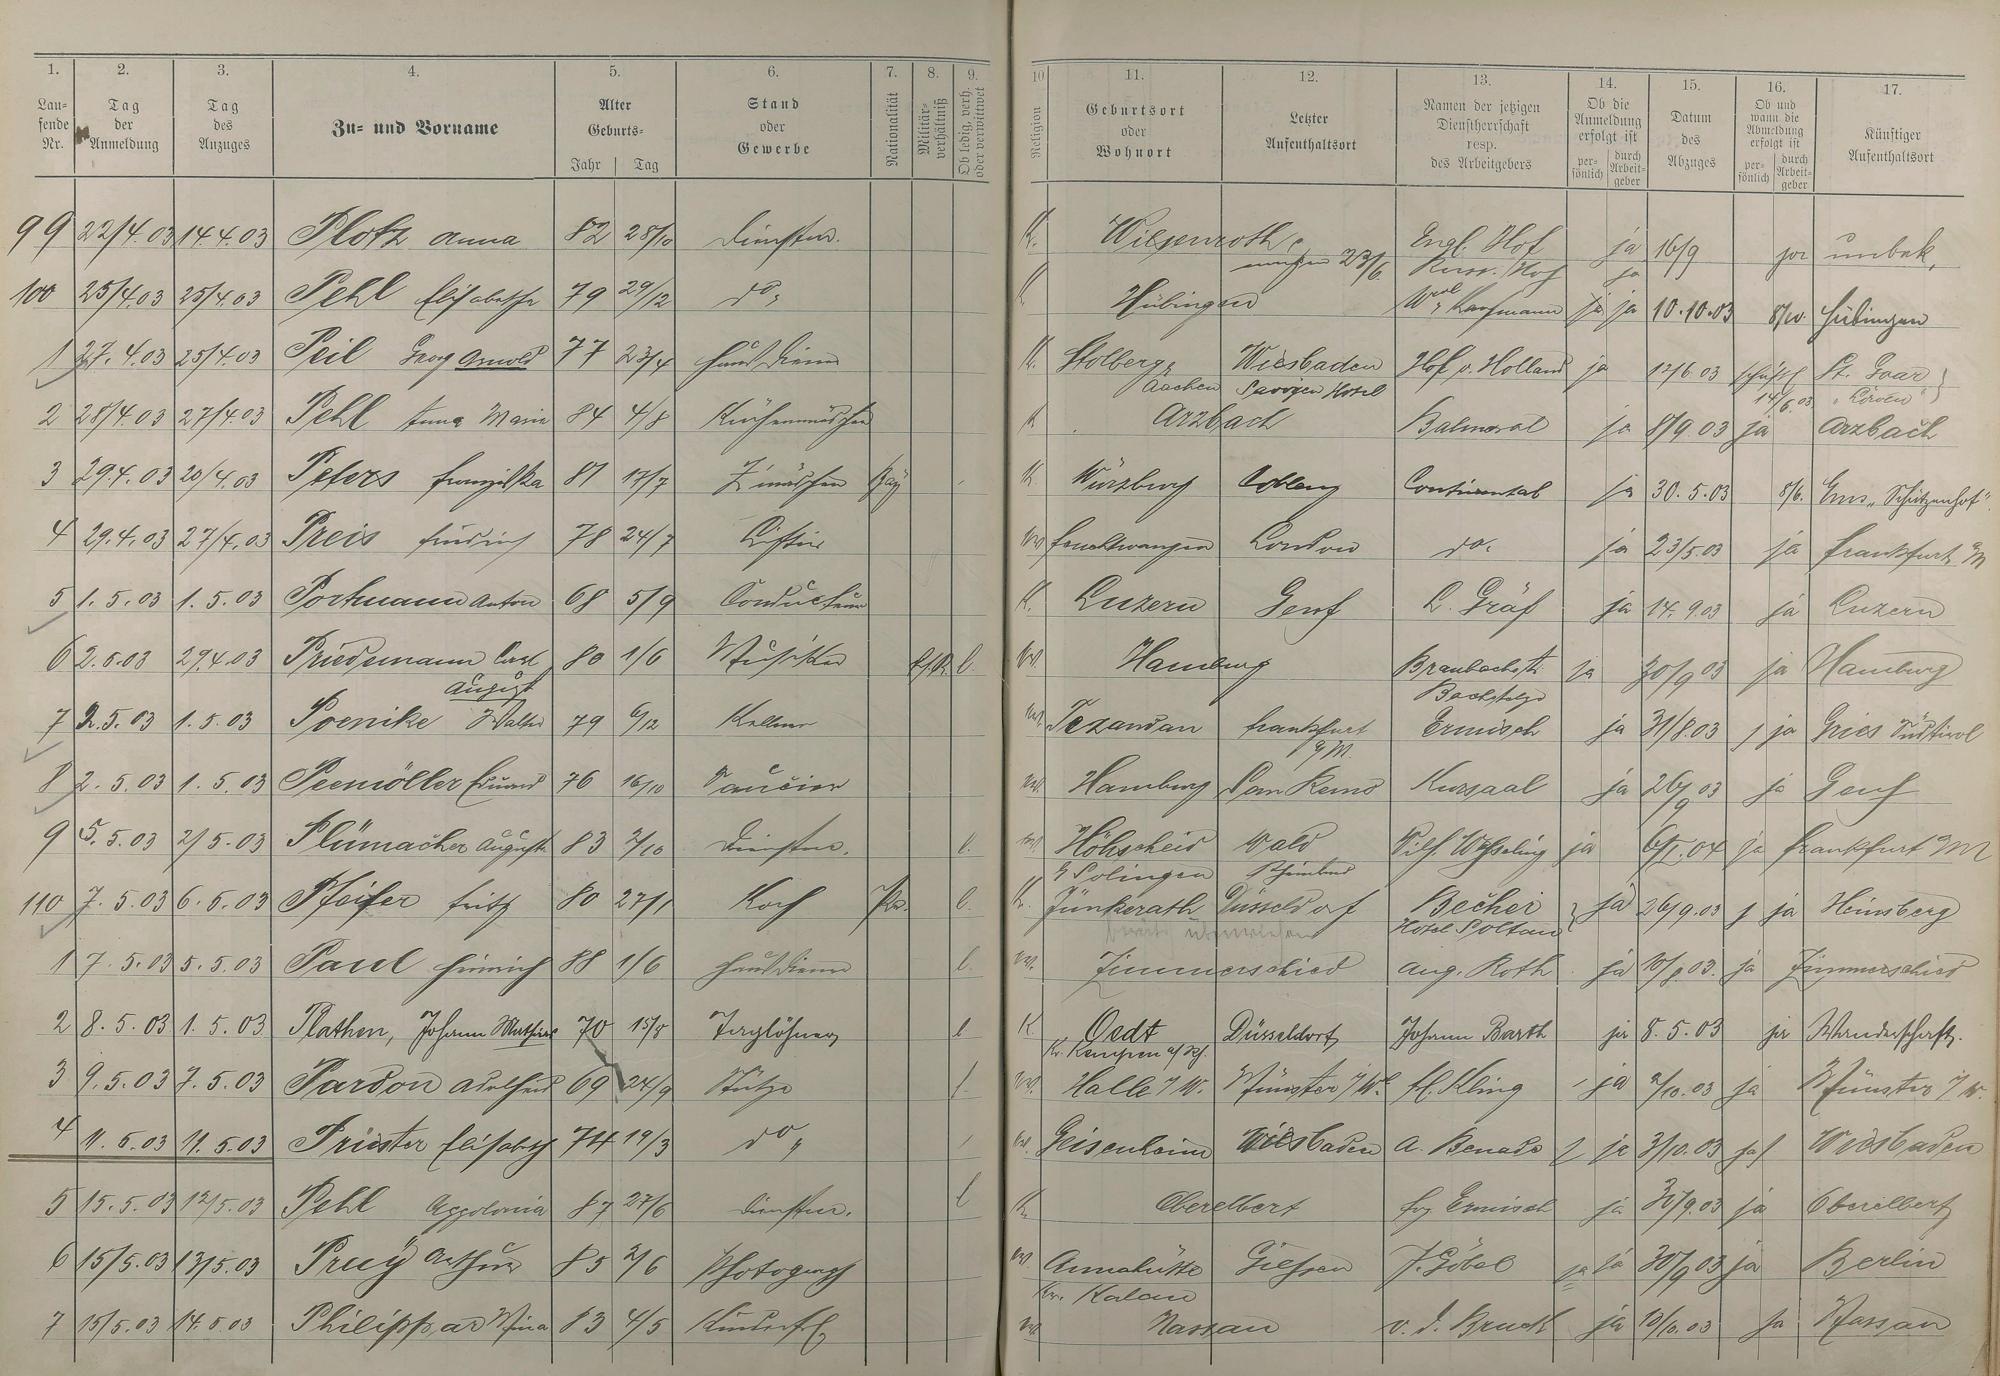 1. 2. 3. 4. 5. 6. 7. 8. 9. 10 11. 12. 13. 14. 15. 16. 17.
Lau-fende Nr. Tag der Anmeldung Tag des Anzuges Zu- und Vorname Alter Geburts- Jahr Tag Stand oder Gewerbe Nationalität Militär-verhältniß Ob ledig, verh. oder verwittwet Religion Geburtsort oder Wohnort Letzter Aufenthaltsort Namen der jetzigen Dienstherrschaft resp. des Arbeitgebers Ob die Anmeldung erfolgt ist per-sönlich durch Arbeit-geber Datum des Abzuges Ob und wann die Abmeldung erfolgt ist per-sönlich durch Arbeit-geber Künftiger Aufenthaltsort
99 22/4.03 14.4.03 Plotz Anna 82 28/10 Dienstm. K. Engl. Hof ja 16/9 ja unbek.
23/6. Russ. Hof ja
100 25/4.03 25/4.03 Pehl Elisabetha 79 29/12 do. K Hübingen Kaufmann ja ja 10.10.03 8/10. Hübingen
1 27.4.03 25/4.03 Peil Georg Arnold 77 23/4 Hausdiener K. Stolberg Wiesbaden Hof v. Holland ja 12/6 03 St. Goar
Aachen Savoyen Hotel 14/6.03 "Löwen"
2 28/4.03 27/4.03 Pehl Anna Maria 84 4/8 Küchenmädchen K Arzbach Balmoral ja 8/9 03 ja Arzbach
3 29.4.03 20/4.03 Peters Franziska 81 17/7 Z'mädchen Bay K. Würzburg Coblenz Continental ja 30.5.03 8/6. Ems "Schützenhof"
4 29.4.03 27/4.03 Preis Friedrich 78 24/7 Liftier ev Feuchtwangen London do. ja 23/5.03 ja Frankfurt a/M
5 1.5.03 1.5.03 Portmann Anton 68 5/9 Conducteur K. Luzern Genf L. Gräf ja 14.9.03 ja Luzern
6 2.5.03 29.4.03 Priedemann Carl 80 1/6 Musiker l. ev Hamburg Braubacherstr. ja 30/9 03 ja Hamburg
August
7 2.5.03 1.5.03 Poenike Walter 79 6/12 Kellner ev. Frankfurt Ermisch ja 31/8.03 ja Gries Südtirol
a/M.
8 2.5.03 1.5.03 Peemöller Eduard 76 16/10 Saucier ev. Hamburg San Remo Kursaal ja 26/9 03 ja Genf
9 5.5.03 2/5.03 Plümacher Auguste 83 2/10 Dienstm. l. ev. Höhscheid Wald Wilh. ja 6/1.04 ja Frankfurt a/M
Solingen Rheinland
110 7.5.03 6.5.03 Pfeifer Fritz 80 27/1 Koch Pr. l. K. Jünkerath Düsseldorf Becher ja 26/9.03 ja Heinsberg
Hotel Soltau
1 7.5.03 5.5.03 Paul Heinrich 88 1/6 Hausdiener l. ev. Zimmerschied Aug. Roth ja 10/8 03. ja Zimmerschied
2 8.5.03 1.5.03 Plathen, Johann Mathias 70 15/8 Taglöhner l K Oedt Düsseldorf Johann Barth ja 8.5.03 ja Wanderschaft.
Kr. Kempen a/Rh.
3 9.5.03 7.5.03 Pardon Adelheid 69 24/9 Stütze l ev. Halle i/W. Münster i/W. H. Kling ja 2/10.03 ja Münster i/W.
4 11.5.03 11.5.03 Priester Elisabeth 74 19/3 do " ev Geisenheim Wiesbaden A. Benade ja 3/10.03 ja Wiesbaden
5 15.5.03 12/5.03 Pehl Appolonia 87 27/6 Dienstm. l K. Oberelbert Ermisch ja 30/9.03 ja Oberelbert
6 15/5.03 13/5.03 Preÿ Arthur 85 2/6 Photograph ev Annahütte Giessen J. Göbel ja ja 30/9 03 ja Berlin
Kr. Kalau
7 15/5.03 14.5.03 Philippar Mina 83 4/5 Kinderfrl. ev Nassau v. d. Bruck ja 10/10.03 ja Nassau